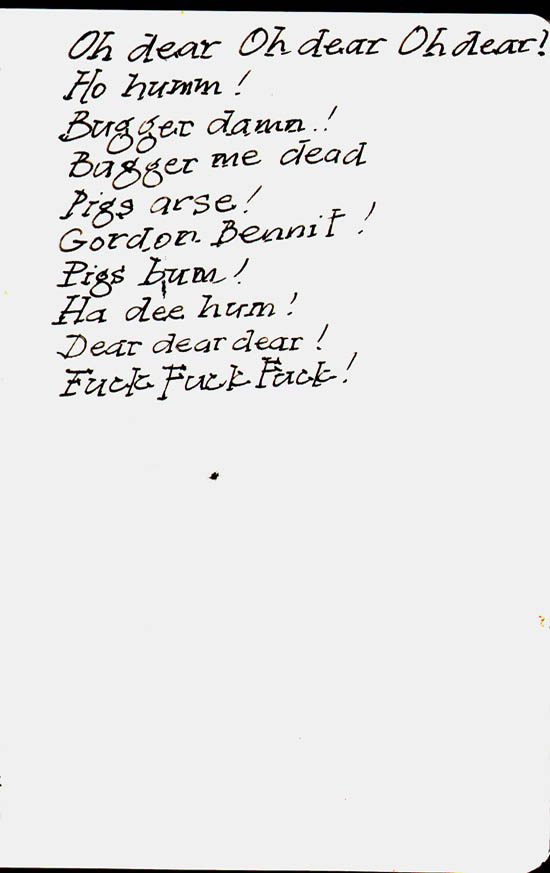 Oh dear Oh dear Oh dear!
Ho humm!
Bugger damn.!
Bugger me dead
Pigs arse!
Gordon Bennit!
Pigs bum!
Ha dee hum!
Dear dear dear!
Fuck Fuck Fuck!